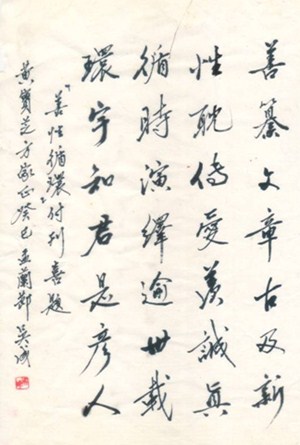 善纂文章古及新
性耽傳愛羨誠真
循時演繹逾卅載
環宇知君是彥人
"善性循環"付刊喜題
黃寶芝方家正癸巳孟蘭鄰吳